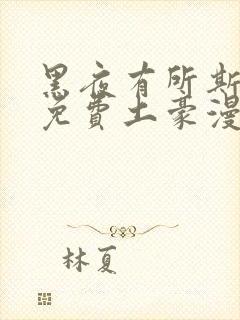 黑夜有所斯
免费土豪漫
林夏